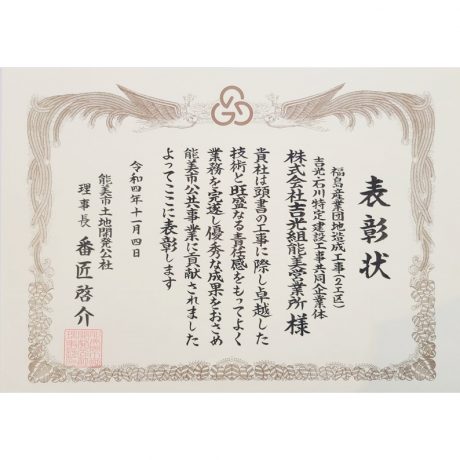 表彰状
福島産業団地造成工事(2工区)
吉光・石川特定建設工事共同企業体
株式会社吉光組能美営業所 様
貴社は頭書の工事に際し卓越した
技術と旺盛なる責任感をもってよく
業務を完遂し優秀な成果をおさめ
能美市公共事業に貢献されました
よってここに表彰します
令和四年十一月四日
能美市土地開発公社
理事長 番匠啓介